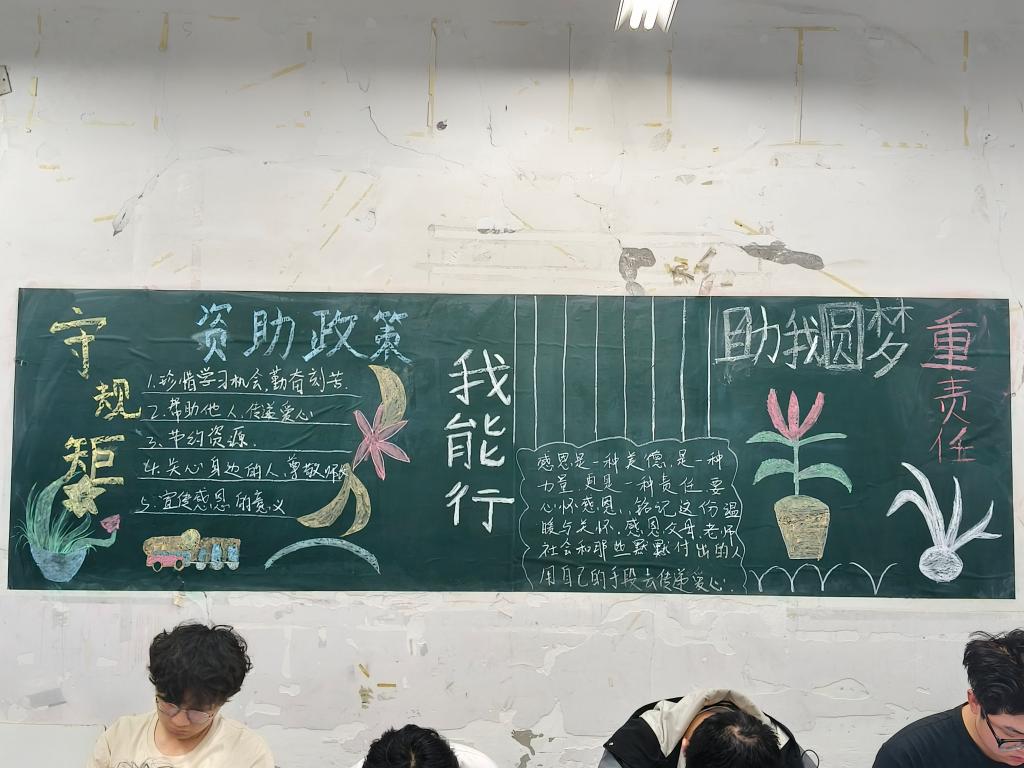 守规矩
资助政策
1.珍惜学习机会,勤奋刻苦.
2.帮助他人,传递爱心
3.节约资源.
4.关心身边的人,尊敬师长
5.宣传感恩的意义
我能行
感恩是一种美德,是一种
力量,更是一种责任要
心怀感恩,铭记这份温
暖与关怀.感恩父母,老师
社会和那些默默付出的人
用自己的手段去传递爱心.
助我圆梦
重责任